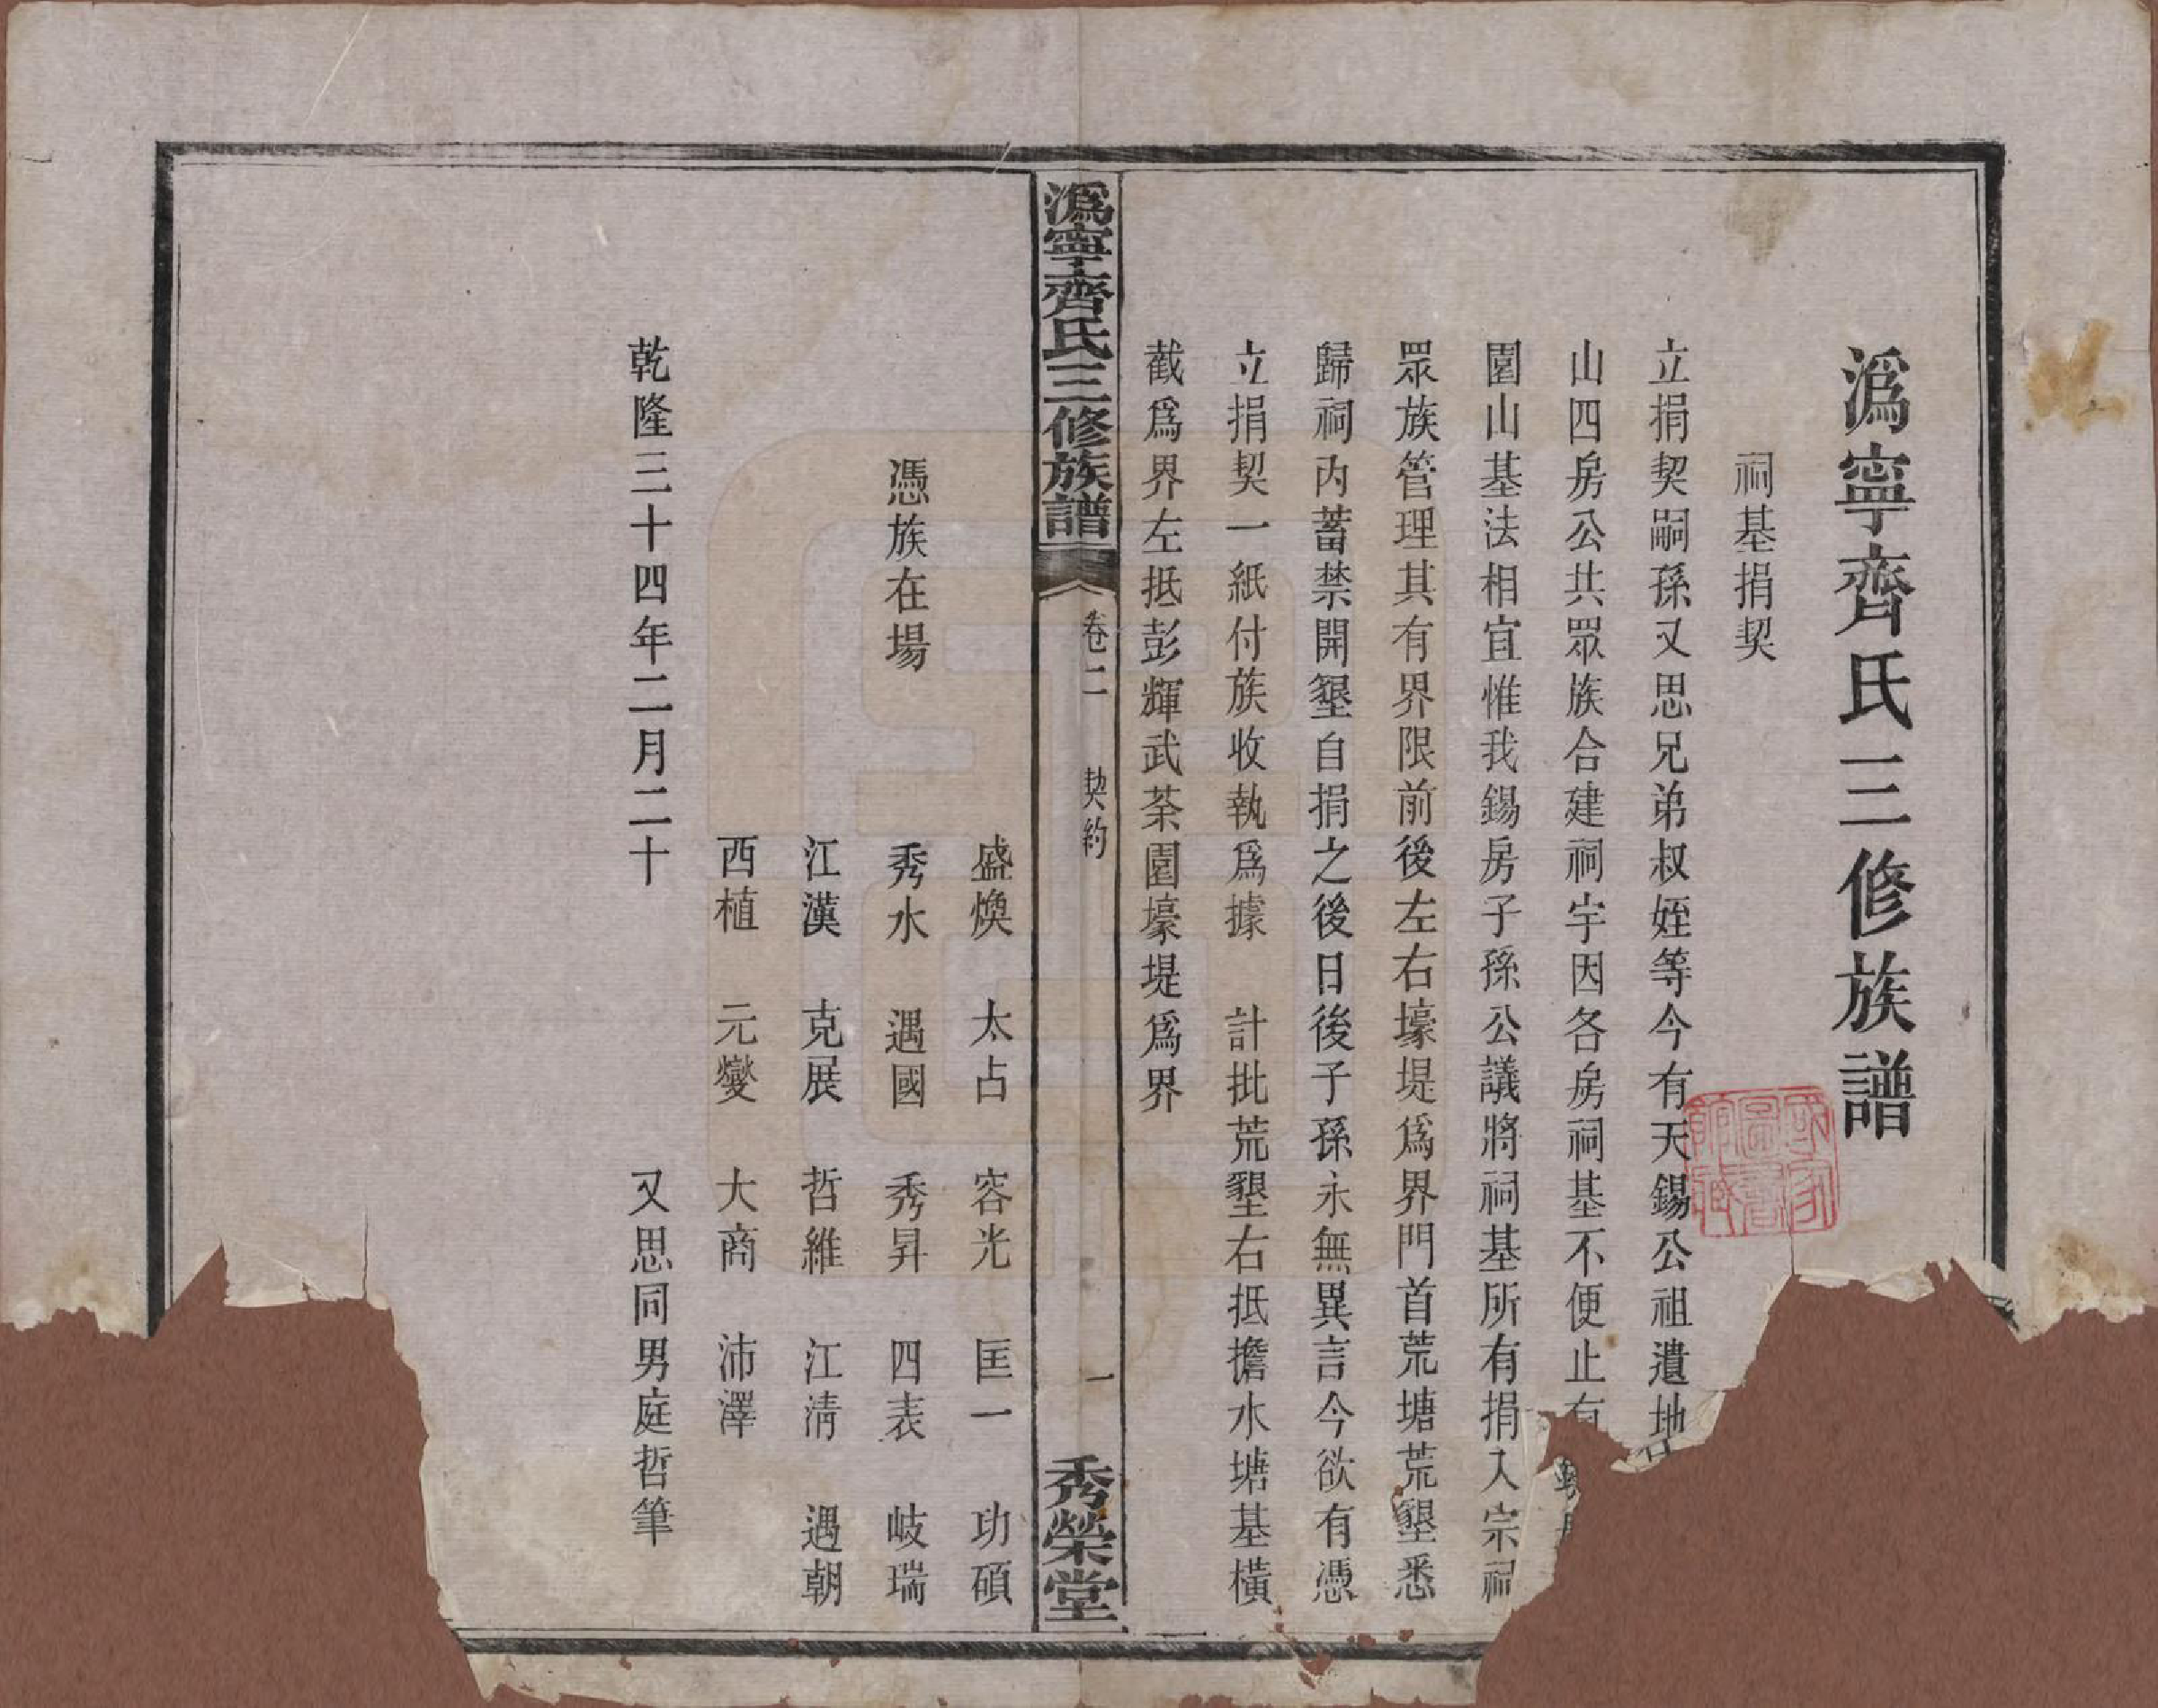 潙寧齊氏三修族譜
祠基捐契
立捐契嗣孫又思兄弟叔姪等今有天錫公祖遺地
山四房公共眾族合建祠宇因各房祠基不便止有
園山基法相宜惟我錫房子孫公議將祠基所有捐入宗祠
眾族管理其有界限前後左右壕堤爲界門首荒塘荒墾悉
歸祠內蓄禁開墾自捐之後日後子孫永無異言今欲有憑
立捐契一紙付族收執爲據　計批荒墾右抵擔水塘基橫
截爲界左抵彭輝武茶園壕堤爲界
潙寧齊氏三修族譜
卷二　契約
一
秀榮堂
盛煥　太占　容光　匡一　功碩
憑族在場　秀水　遇國　秀昇　四表　岐瑞
江漢　克展　哲維　江清　遇朝
西植　元燮　大商　沛澤
乾隆三十四年二月二十　又思同男庭哲筆